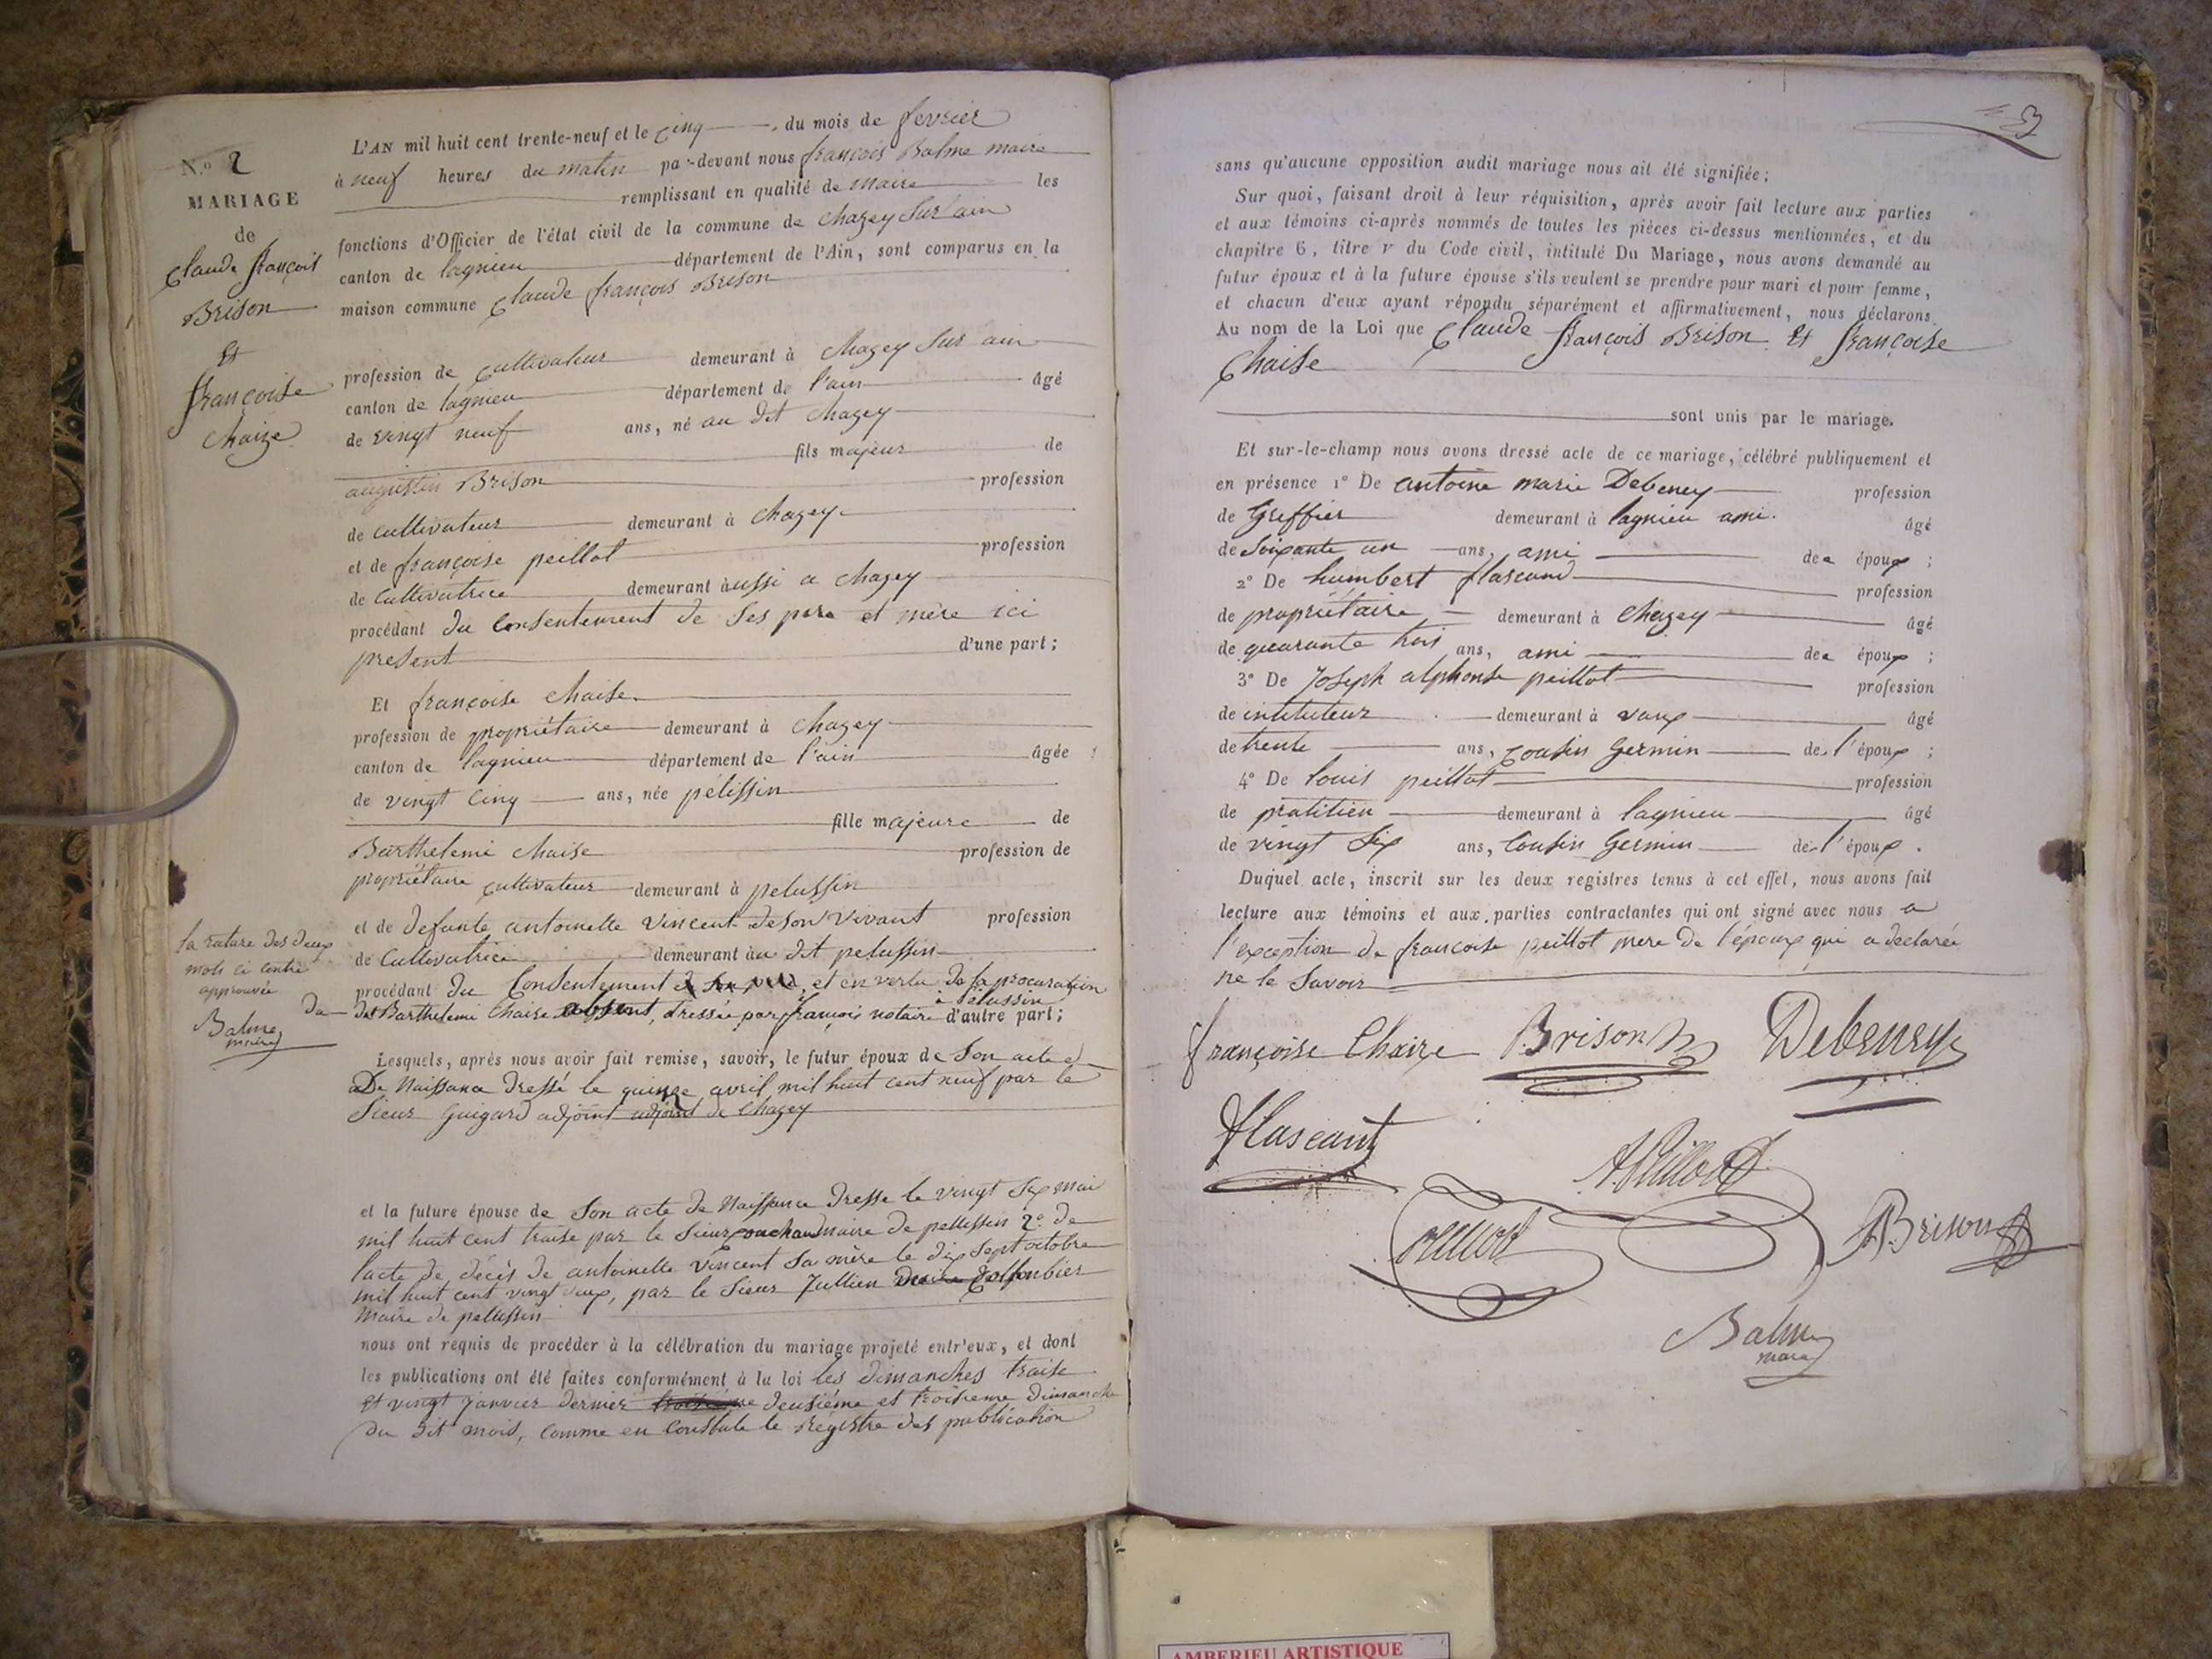 N.º 2
MARIAGE
de
Claude françois
Brison
Et
françoise
Chaize
L'AN mil huit cent trente-neuf et le cinq du mois de fevrier
à neuf heures du matin pa-devant nous françois Balme maire
remplissant en qualité de maire les
fonctions d'Officier de l'état civil de la commune de Chazey Sur ain
canton de lagnieu département de l'Ain, sont comparus en la
maison commune Claude françois Brison
profession de cultivateur demeurant à Chazey Sur ain
canton de lagnieu département de l'ain âgé
de vingt neuf ans, né au dit Chazey
fils majeur de
augustin Brison profession
de cultivateur demeurant à Chazey
et de françoise peillot profession
de Cultivatrice demeurant àussi a Chazey
procédant du Consentement de Ses pere et mère ici
present d'une part;
Et françoise Chaise
profession de propriétaire demeurant à Chazey
canton de lagnieu département de l'ain âgée
de vingt cinq ans, née pélissin
fille majeure de
Barthelemi Chaise profession de
propriétaire cultivateur demeurant à pelussin
et de defunte antoinette Vincent de Son Vivant profession
de Cultivatrice demeurant àu dit pelussin
procédant du Consentement de Son père, et en vertu de la procuration
du dit Barthelemi Chaise absent, dressée par françois notaire à Pelussin d'autre part;
la rature des deux
mots ci contre
approuvée
Balme
maire
Lesquels, après nous avoir fait remise, savoir, le futur époux de Son acte
De Naissance Dressé le quinze avril mil huit cent neuf par le
Sieur Guigard adjoint adjoint de Chazey
et la future épouse de Son acte de Naissance Dresse le vingt Six mai
mil huit cent traise par le Sieur maire de pelussin 2º de
l'acte de décès de antoinette Vincent Sa mère le dix Sept octobre
mil huit cent vingt deux, par le Sieur Jullien
Maire de pelussin
nous ont requis de procéder à la célébration du mariage projeté entr'eux, et dont
les publications ont été faites conformément à la loi les dimanches traise
et vingt Janvier dernier deusiéme et troisieme dimanche
du dit mois, comme en Constate le Régistre des publication
3
sans qu'aucune opposition audit mariage nous ait été signifiée;
Sur quoi, faisant droit à leur réquisition, après avoir fait lecture aux parties
et aux témoins ci-après nommés de toutes les pièces ci-dessus mentionnées, et du
chapitre 6, titre v du Code civil, intitulé Du Mariage, nous avons demandé au
futur époux et à la future épouse s'ils veulent se prendre pour mari et pour femme,
et chacun d'eux ayant répondu séparément et affirmativement, nous déclarons
Au nom de la Loi que Claude françois Brison Et françoise
Chaise
sont unis par le mariage.
Et sur-le-champ nous avons dressé acte de ce mariage, célébré publiquement et
en présence 1º De antoine marie Debeney profession
de Greffier demeurant à lagnieu ami. âgé
de Soixante un ans, ami des époux;
2º De humbert flascand profession
de propriétaire demeurant à Chazey âgé
de quarante trois ans, ami des époux;
3º De Joseph alphonse peillot profession
de intituteur demeurant à vaux âgé
de trente ans, Cousin Germin de l'époux;
4º De louis peillot profession
de pratitien demeurant à lagnieu âgé
de vingt Six ans, Cousin Germin de l'époux.
Duquel acte, inscrit sur les deux registres tenus à cet effet, nous avons fait
lecture aux témoins et aux parties contractantes qui ont signé avec nous a
l'exception de françoise peillot mere de l'époux qui a declarée
ne le Savoir
françoise Chaize Brison Debeney
flascant
A Peillot
Peillot
A. Brison
Balme
maire
AMBERIEU ARTISTIQUE